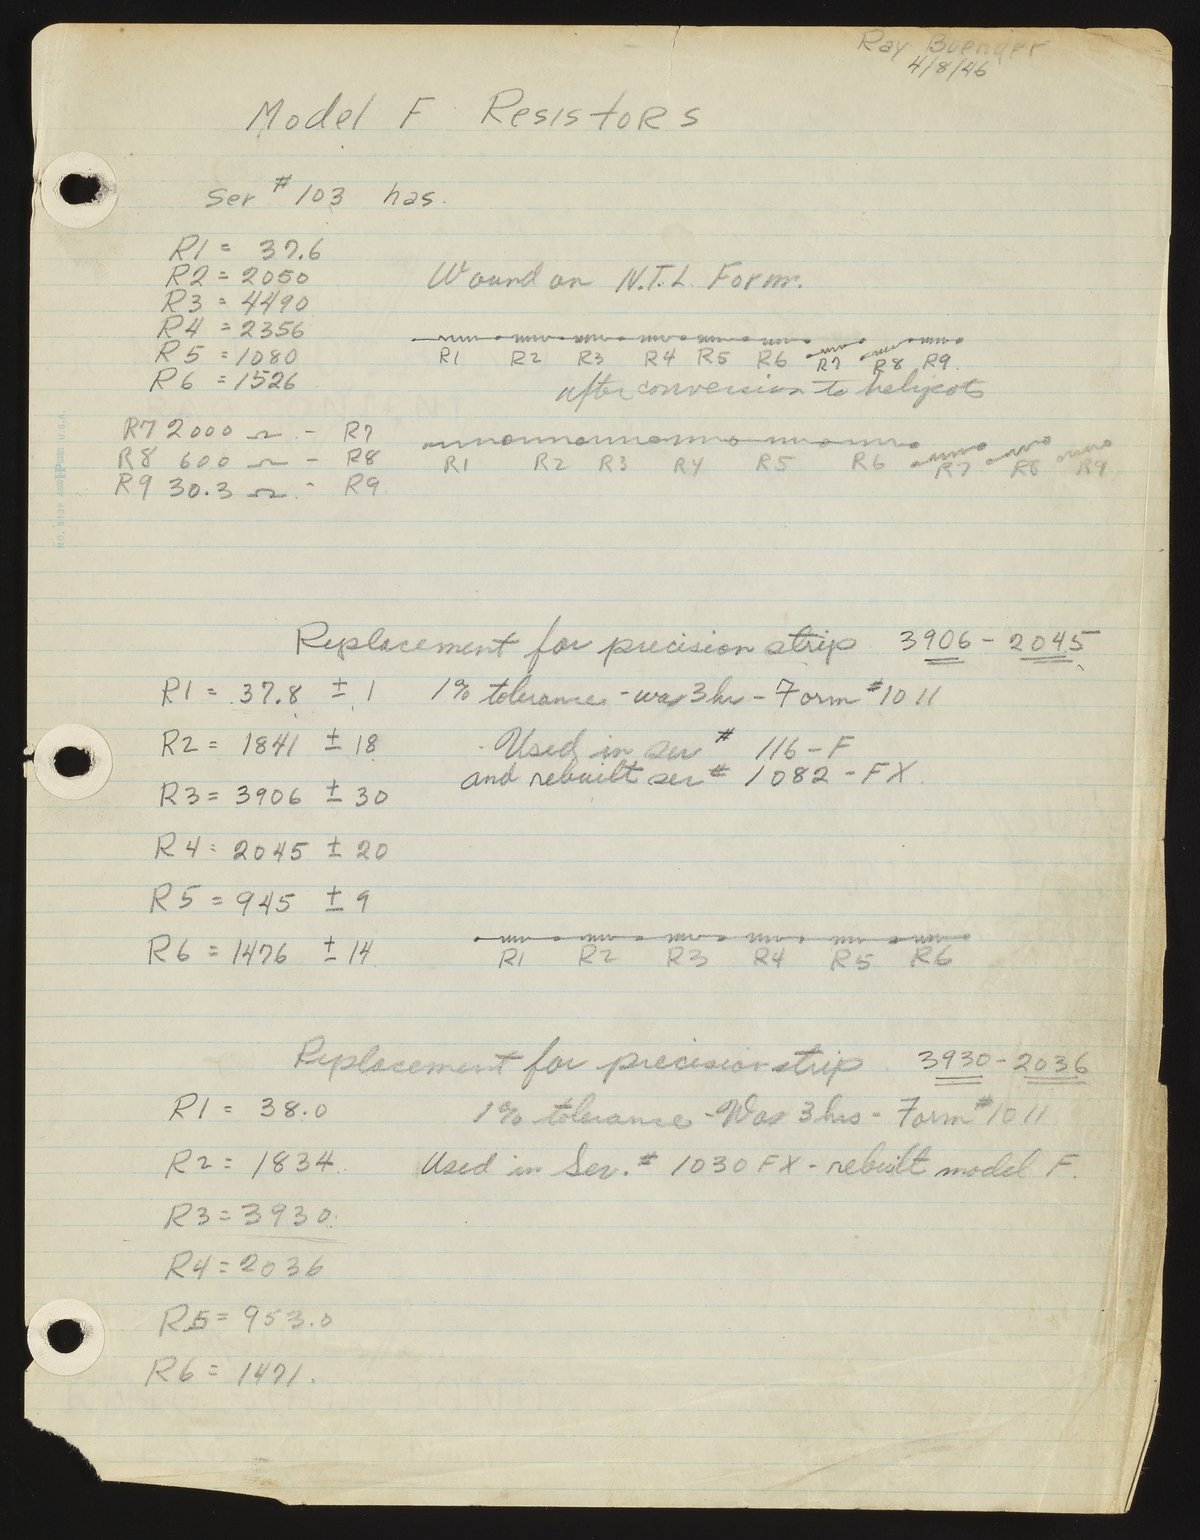 Ray Buenger
4/8/46
Model F Resistors
Ser # 103 has.
R1 = 37.6
R2 = 2050
Wound on N.T.L. Form.
R3 = 4490
R4 = 2356
R5 = 1080
R1 R2 R3 R4 R5 R6 R7 R8 R9
R6 = 1526
after conversion to helipots
R7 2000 Ω - R7
R8 600 Ω - R8
R1 R2 R3 R4 R5 R6 R7 R8 R9
R9 30.3 Ω - R9
Replacement for precision strip 3906 - 2045
R1 = 37.8 ± .1 1% tolerance - was 3 hr - Form #1011
R2 = 1841 ± 18 Used in ser # 116 - F
and rebuilt ser # 1082 - FX
R3 = 3906 ± 30
R4 = 2045 ± 20
R5 = 945 ± 9
R6 = 1476 ± 14
R1 R2 R3 R4 R5 R6
Replacement for precision strip 3930 - 2036
R1 = 38.0 1% tolerance - Was 3 hrs - Form #1011
R2 = 1834 Used in Ser. # 1030 FX - rebuilt model F.
R3 = 3930
R4 = 2036
R5 = 953.0
R6 = 1471.